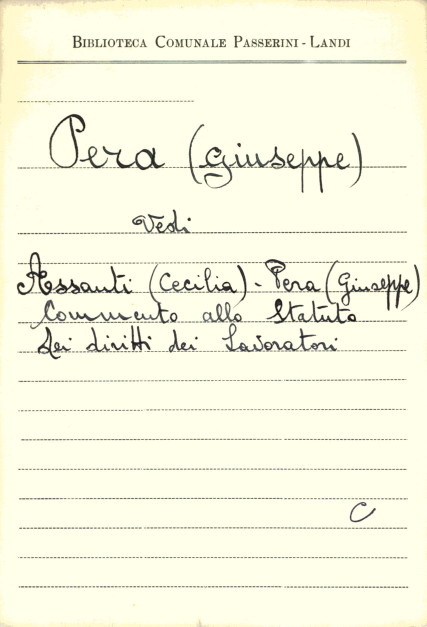 BIBLIOTECA COMUNALE PASSERINI - LANDI
Pera (Giuseppe)
Vedi
Assanti (Cecilia) - Pera (Giuseppe)
Commento allo Statuto
dei diritti dei Lavoratori
C